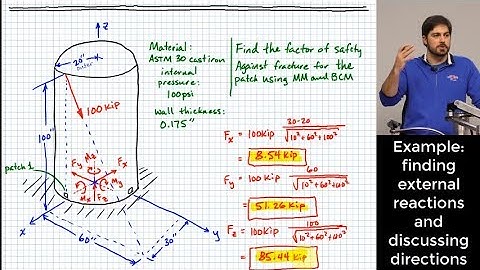 z
20"
outer
Material:
ASTM 30 cast iron
internal
pressure:
100psi
wall thickness:
0.175"
Find the factor of safety
Against fracture for the
patch using MM and BCM
100 Kip
100"
patch 1
Fy
Mz
Fx
My
Mx
Fz
x
y
60"
30"
Fx = 100Kip 30-20 / √10²+60²+100²
= 8.54 Kip
Fy = 100 Kip 60 / √10²+60²+110²
= 51.26 Kip
Fz = 100Kip 100 / √10²+60²+110²
= 85.44 Kip
Example:
finding
external
reactions
and
discussing
directions